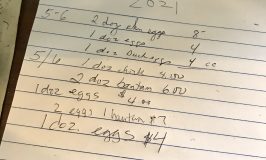 2021
5-6 2 doz chn eggs 8-
1 doz eggs 4
1 doz Duck eggs 4 00
5/6 1 doz chick 4.00
2 doz bantam 6.00
1 doz eggs $4.00
2 eggs 1 bantam $7
1 doz. eggs $4